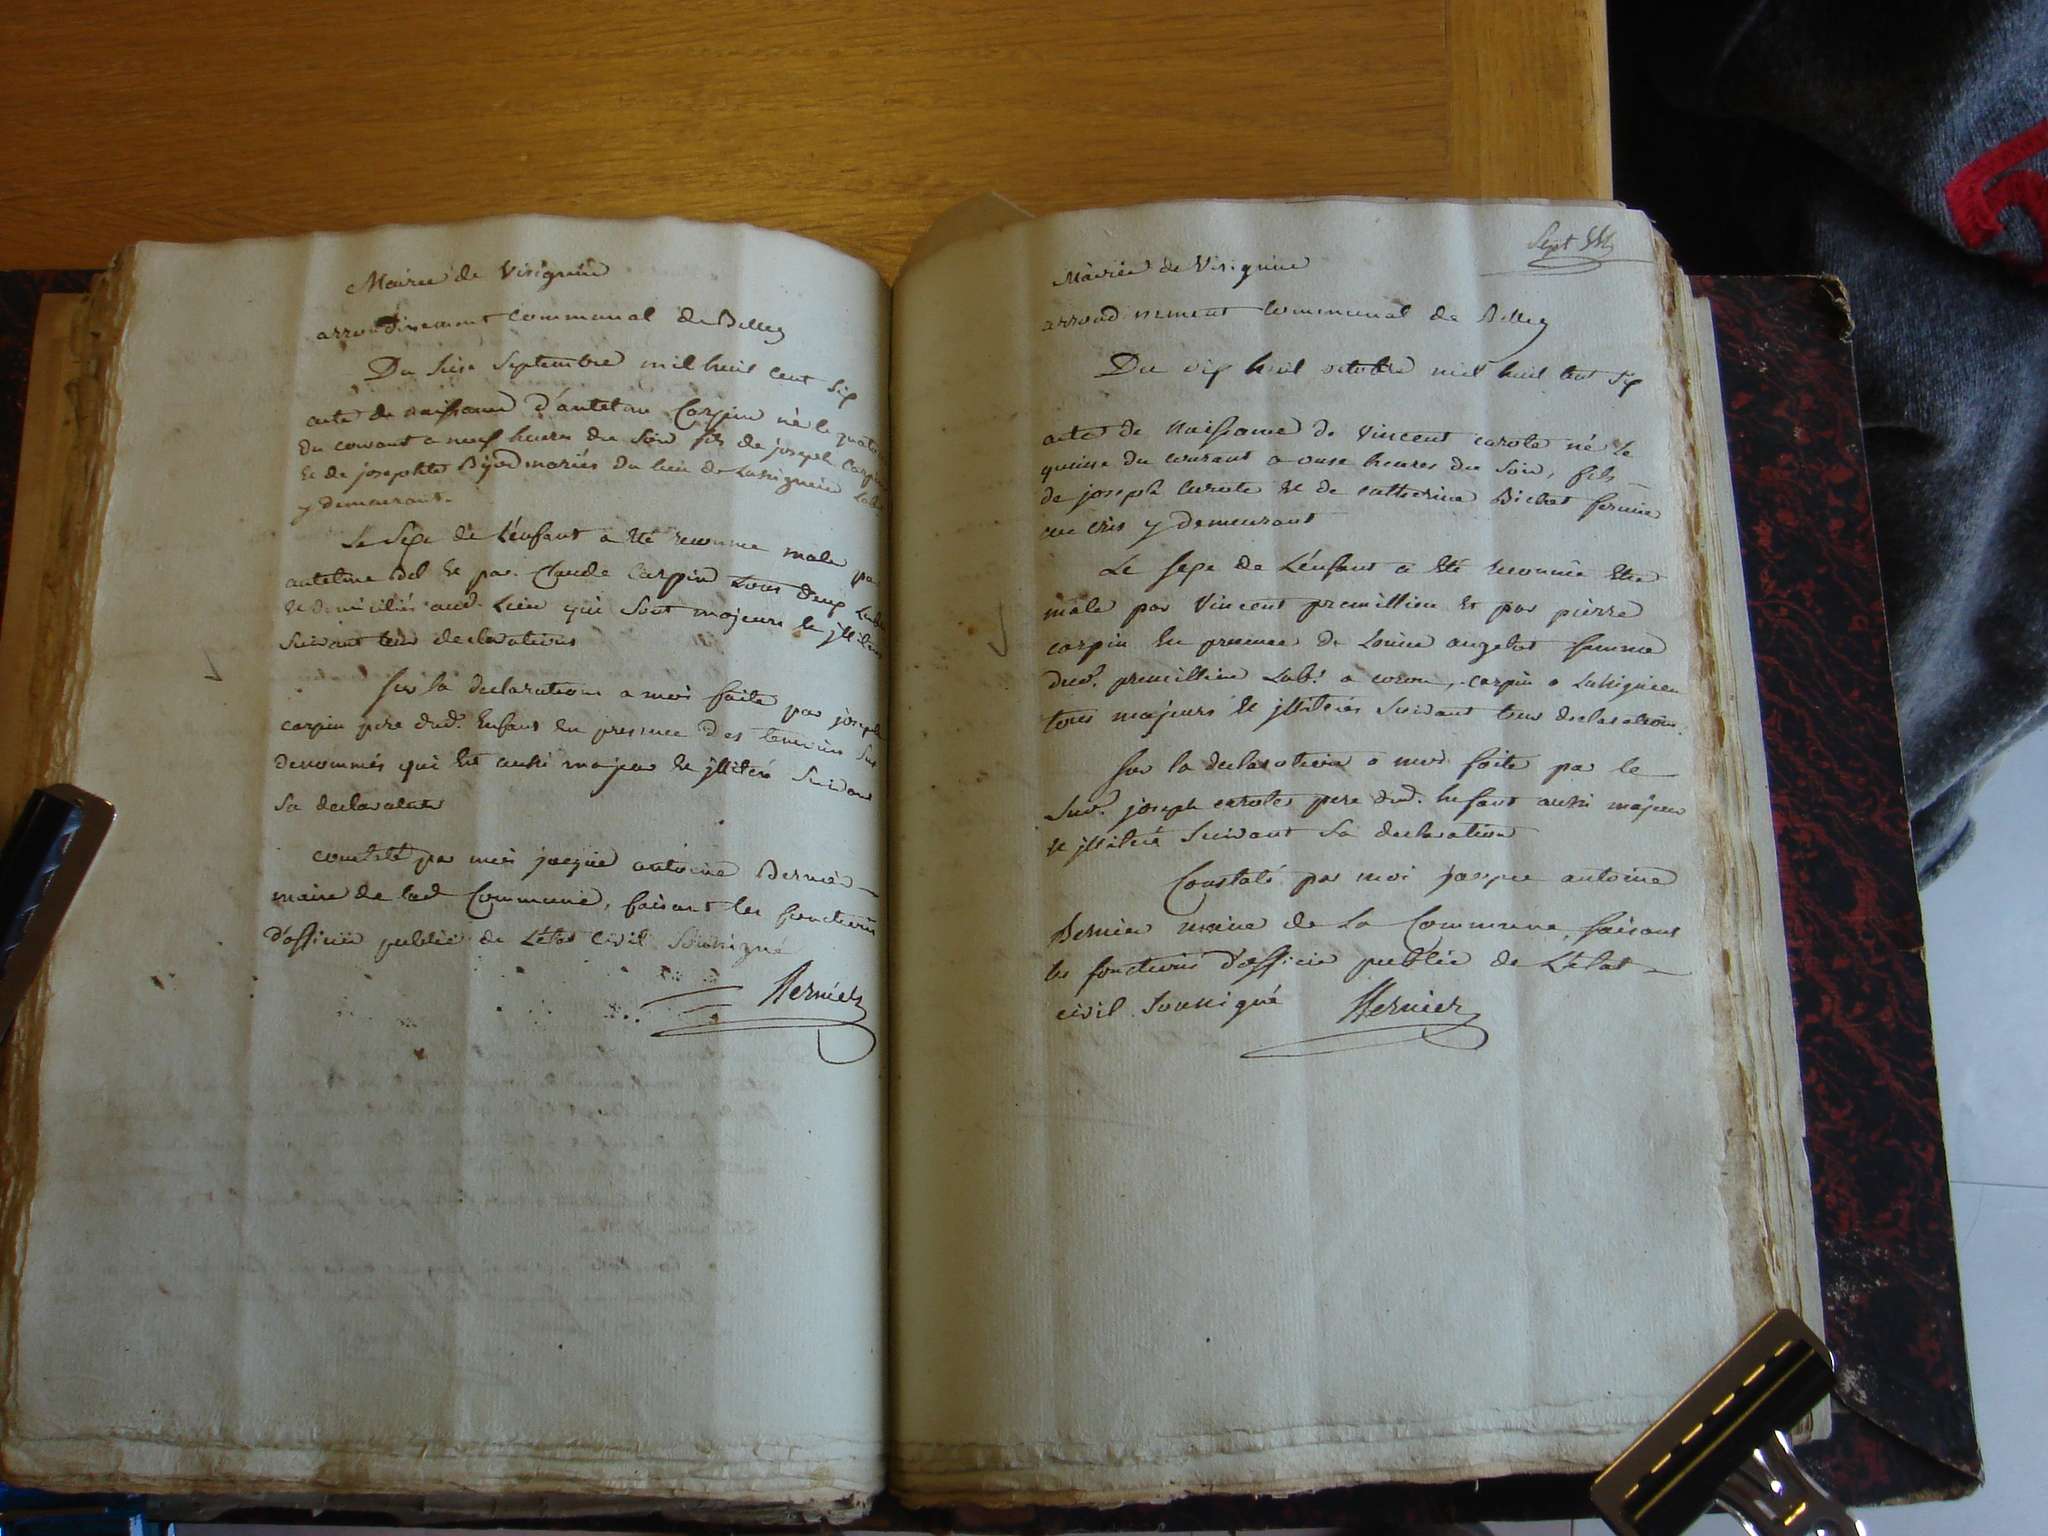 Mairie de Virignin
arrondissement Communal de Belley
Du seise Septembre mil huit cent six
acte de naissance d'antelme Carpin né le quatorze
du courant a neuf heures du soir fils de joseph Carpin
et de josephte mariés du lieu de Lassignieu
y demeurant.
Le sexe de L'enfant a été reconnu male par
antelme et par Claude Carpin tous deux
et domiciliés aud. Lieu qui sont majeurs et
suivant leur declarations
sur la declaration a moi faite par joseph
carpin pere dud. Enfant en presence des temoins sus
denommés qui est aussi majeur et illiteré suivant
sa declaration
constaté par moi jacque antoine Bernier
maire de lad Commune, faisant les fonctions
d'officier public de L'état Civil soussigné
Bernier
Sept
Mairie de Virignin
arrondissement Communal de Belley
Du dix huit octobre mil huit cent six
acte de Naissance de vincent carote né le
quinse du courant a onse heures du soir, fils
de joseph carote et de catherine Bichat
y demeurant
Le sexe de L'enfant a été reconnu etre
male par Vincent premillieu et par pierre
carpin en presence de Louise angelot femme
dud. premillieu Lab. a coron, carpin a Lassignieu
tous majeurs et illiterés suivant leur declarations.
sur la declaration a moi faite par le
sud. joseph carote pere dud. enfant aussi majeur
et illiteré suivant sa declaration
Constaté par moi jacque antoine
Bernier maire de la Commune, faisant
les fonctions d'officier public de L'état
civil soussigné Bernier